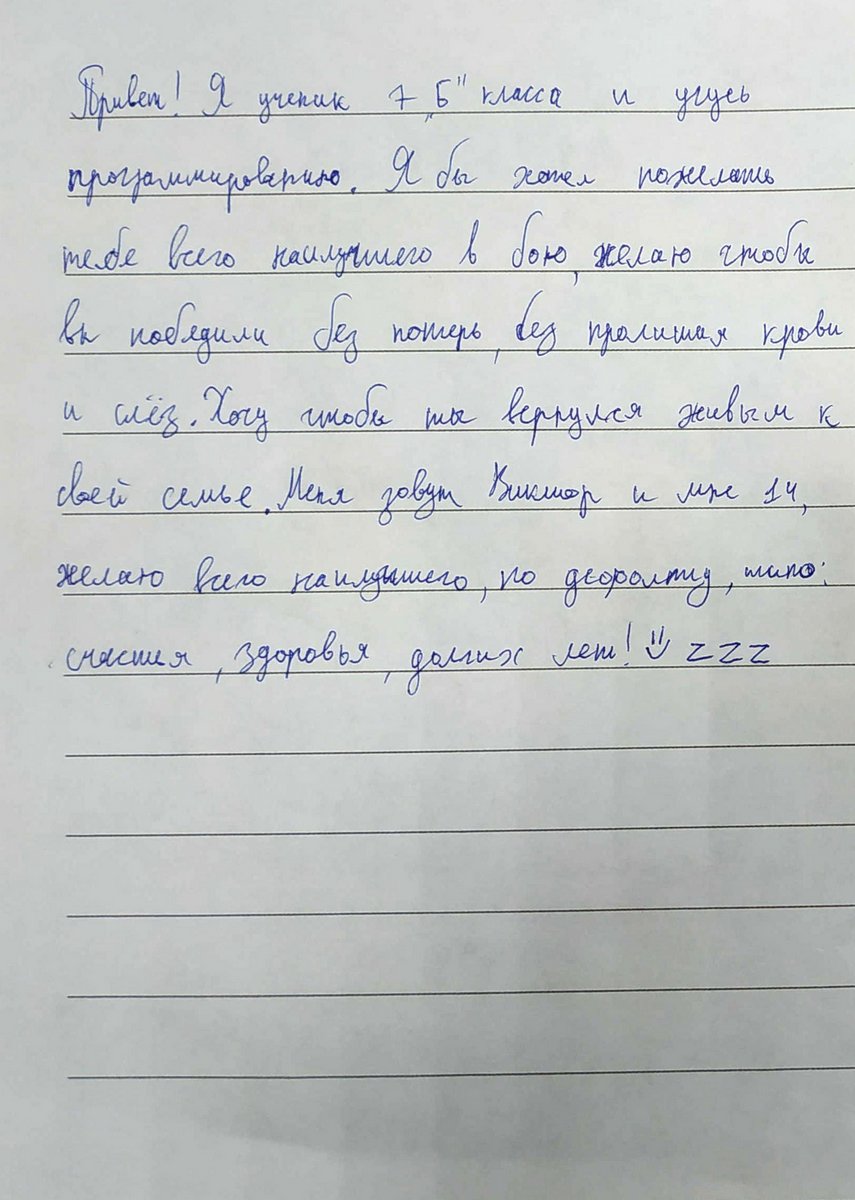 Привет! Я ученик 7 „Б" класса и учусь
программированию. Я бы хотел пожелать
тебе всего наилучшего в бою, желаю чтобы
вы победили без потерь, без пролития крови
и слёз. Хочу чтобы ты вернулся живым к
своей семье. Меня зовут Виктор и мне 14,
желаю всего наилучшего, по дефолту, типо:
счастия, здоровья, долгих лет! ZZZ